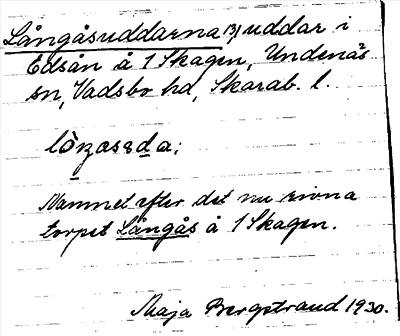 Långåsuddarna B), uddar i
Edsån å 1 Skagen, Undenäs
sn, Vadsbo hd, Skarab. l.
Namnet efter det nu rivna
torpet Långås å 1 Skagen.
Maja Bergstrand 1930.